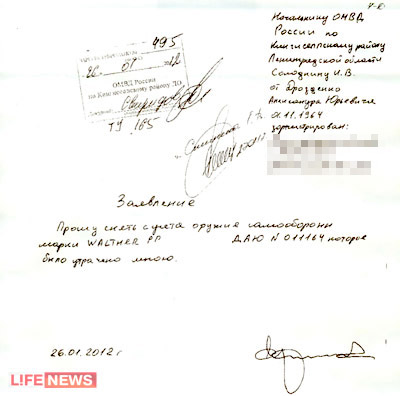 Начальнику ОМВД
России по
Кингисеппскому району
Ленинградской области
Солодкину И.В.
от Дрозденко
Александра Юрьевича
01.11.1964
зарегистрирован:
795
26. 01 2012
ОМВД России
по Кингисеппскому району ЛО
165
Заявление
Прошу снять с учета оружие самообороны
марки WALTHER PP ДАЮ N 011164 которое
было утрачено мною.
26.01.2012 г
LIFENEWS